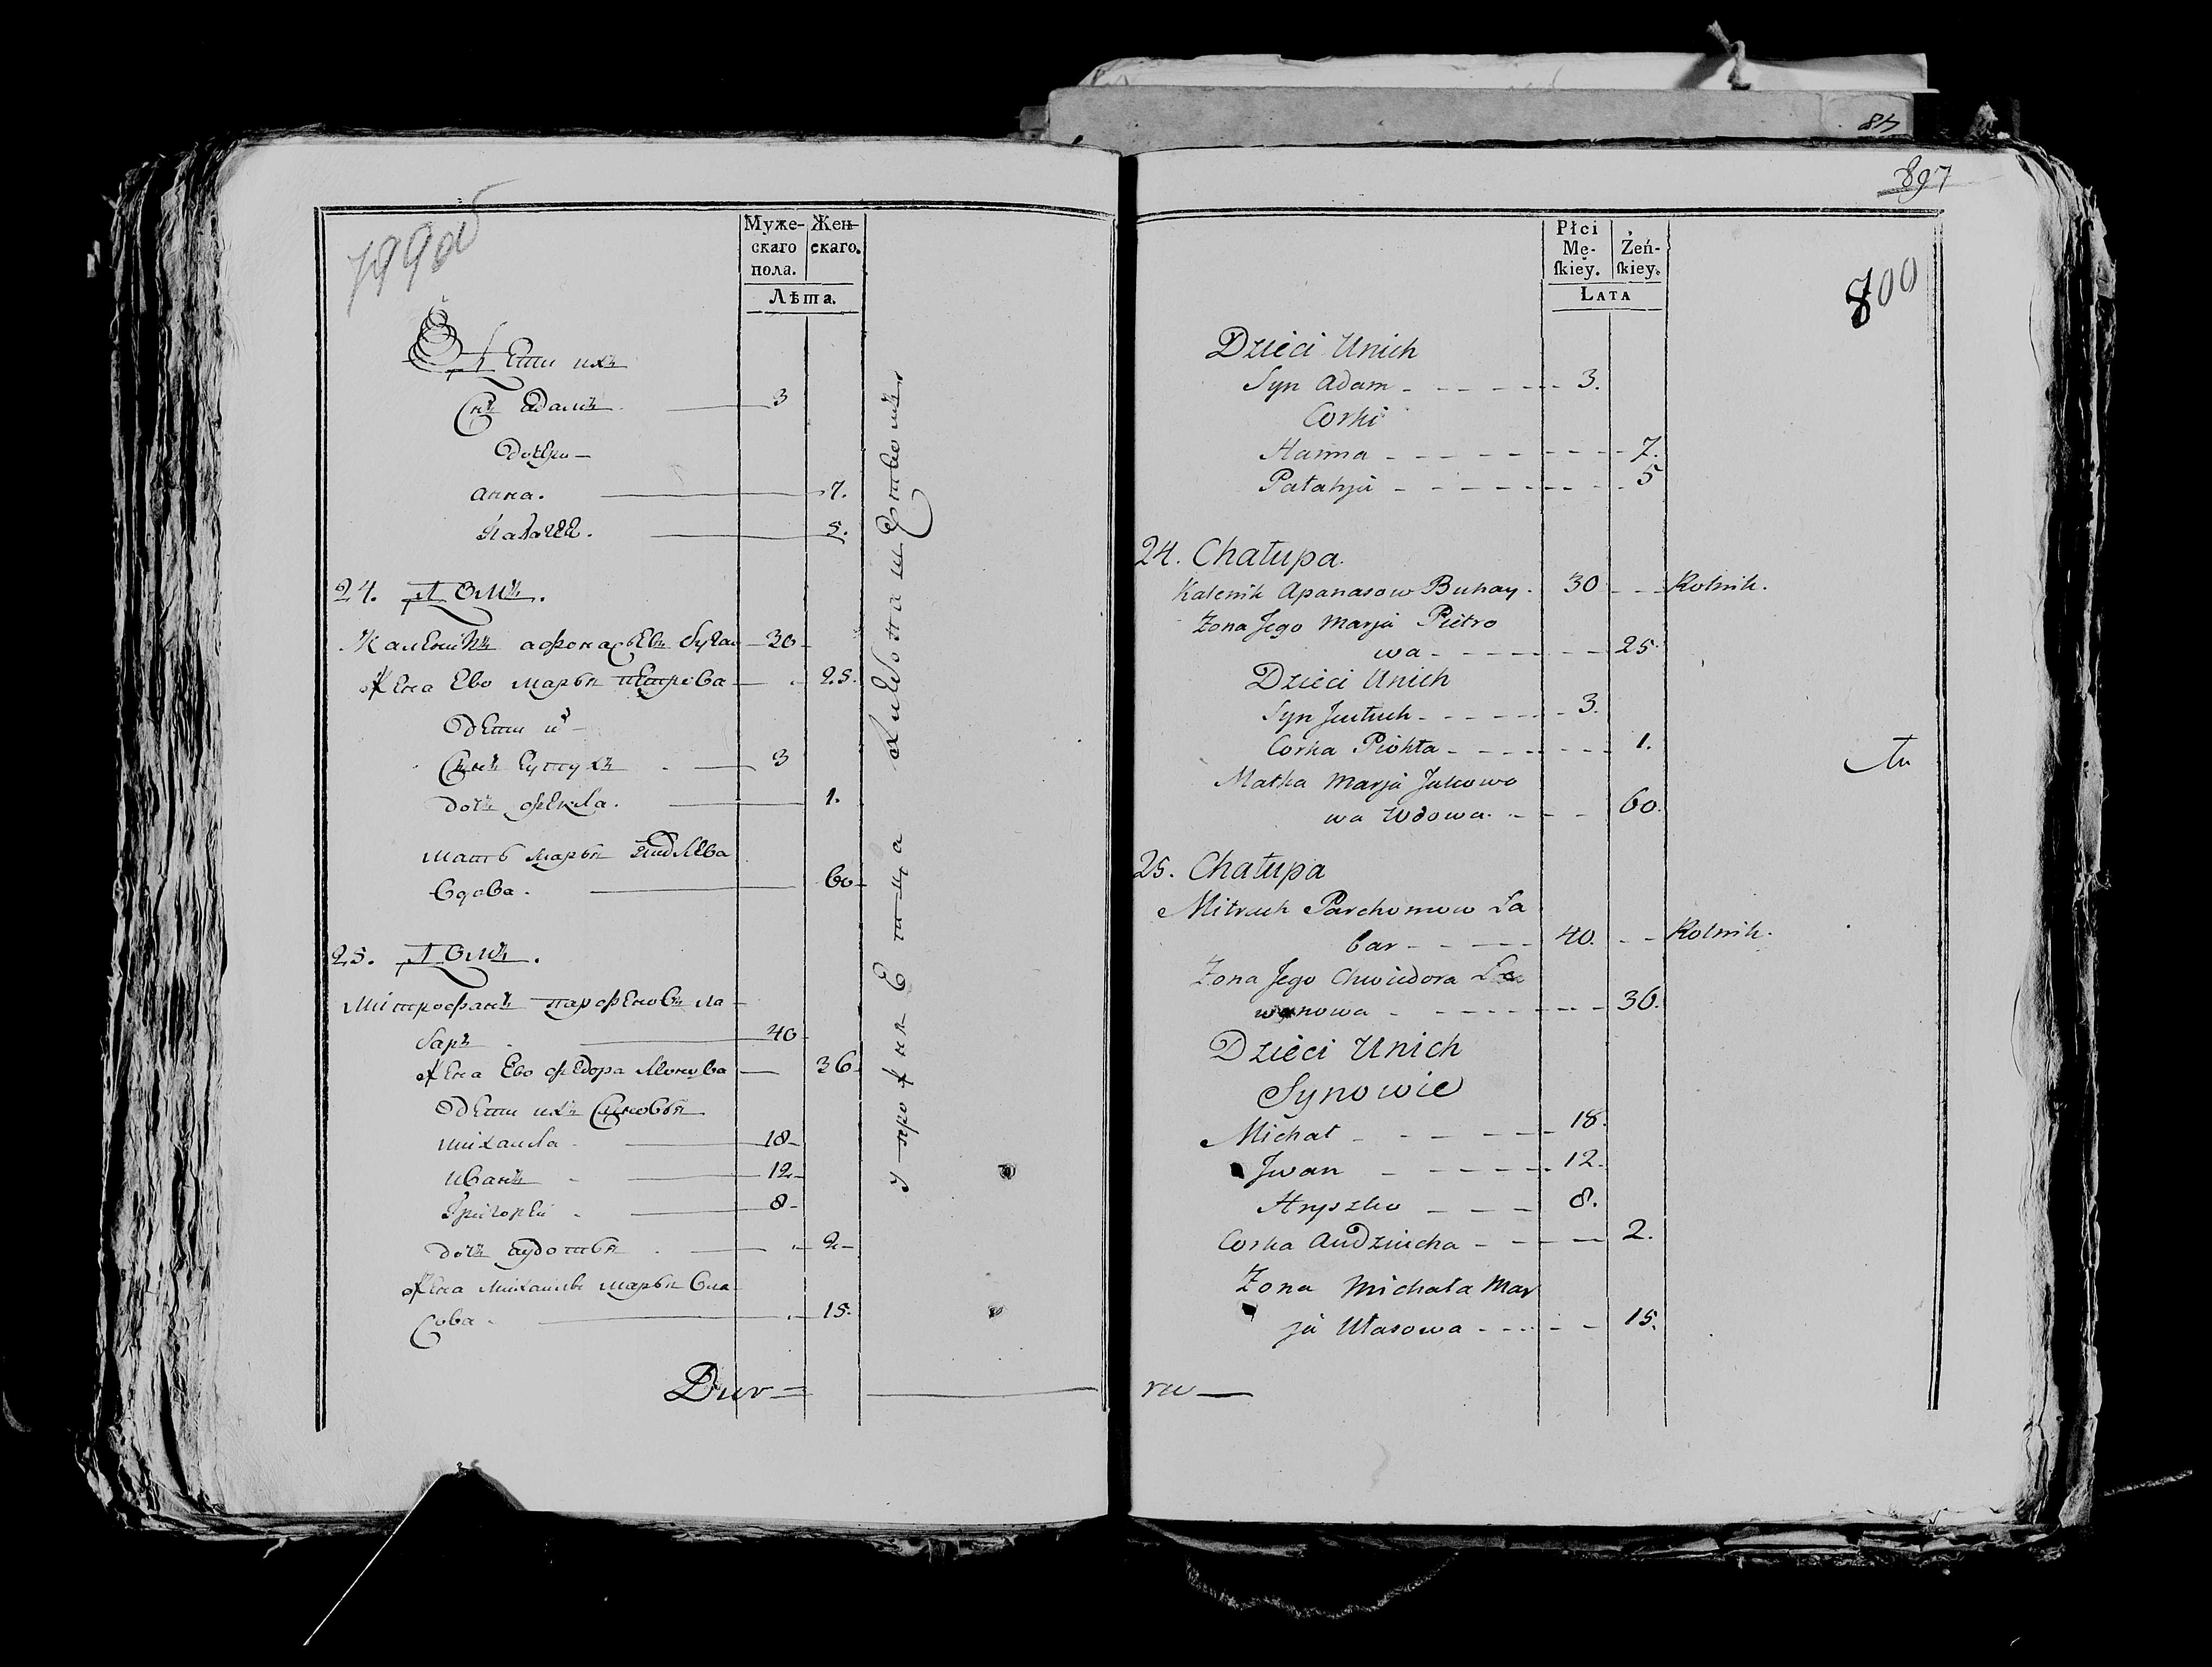 799об
Муже-
скаго
пола.
Жен-
скаго.
Лѣта.
Дети ихъ
Снъ адамъ 3
дочери
анна. 7.
палагея. 5.
24. Домъ.
Каленикъ афонасьевъ бугай 30
жена Ево марья петрова 25.
дети их
Снъ Еутухъ 3
дочь фекла. 1.
мать марья
вдова. 60
25. Домъ.
митрофанъ парфеновъ ла
баръ 40
жена Ево федора 36
дети ихъ Сыновья
михаила 18
иванъ 12
григорей 8
дочь аудотья 2
жена михаила марья вла
сова. 15.
Duw
84
897
800
Płci
Mę-
ſkiey.
Żeń-
ſkiey.
LATA
Dzieci Unich
Syn Adam 3.
Corki
Hanna 7.
Pałahja 5
24. Chałupa.
Kalenik Apanasow Buhay. 30 Rolnik.
Zona Jego Marja Pietro
wa 25.
Dzieci Unich
Syn Jeutuch 3.
Corka Piokła 1.
Matka Marja Jakowo
wa Wdowa. 60.
25. Chałupa
Mitrach Parchomow Ła
bar 40. Rolnik.
Zona Jego Chwiedora
36.
Dzieci Unich
Synowie
Michał 18.
Jwan 12.
Hryszko 8.
Corka Audziucha 2.
Zona Michała Mar
ja Ułasowa 15.